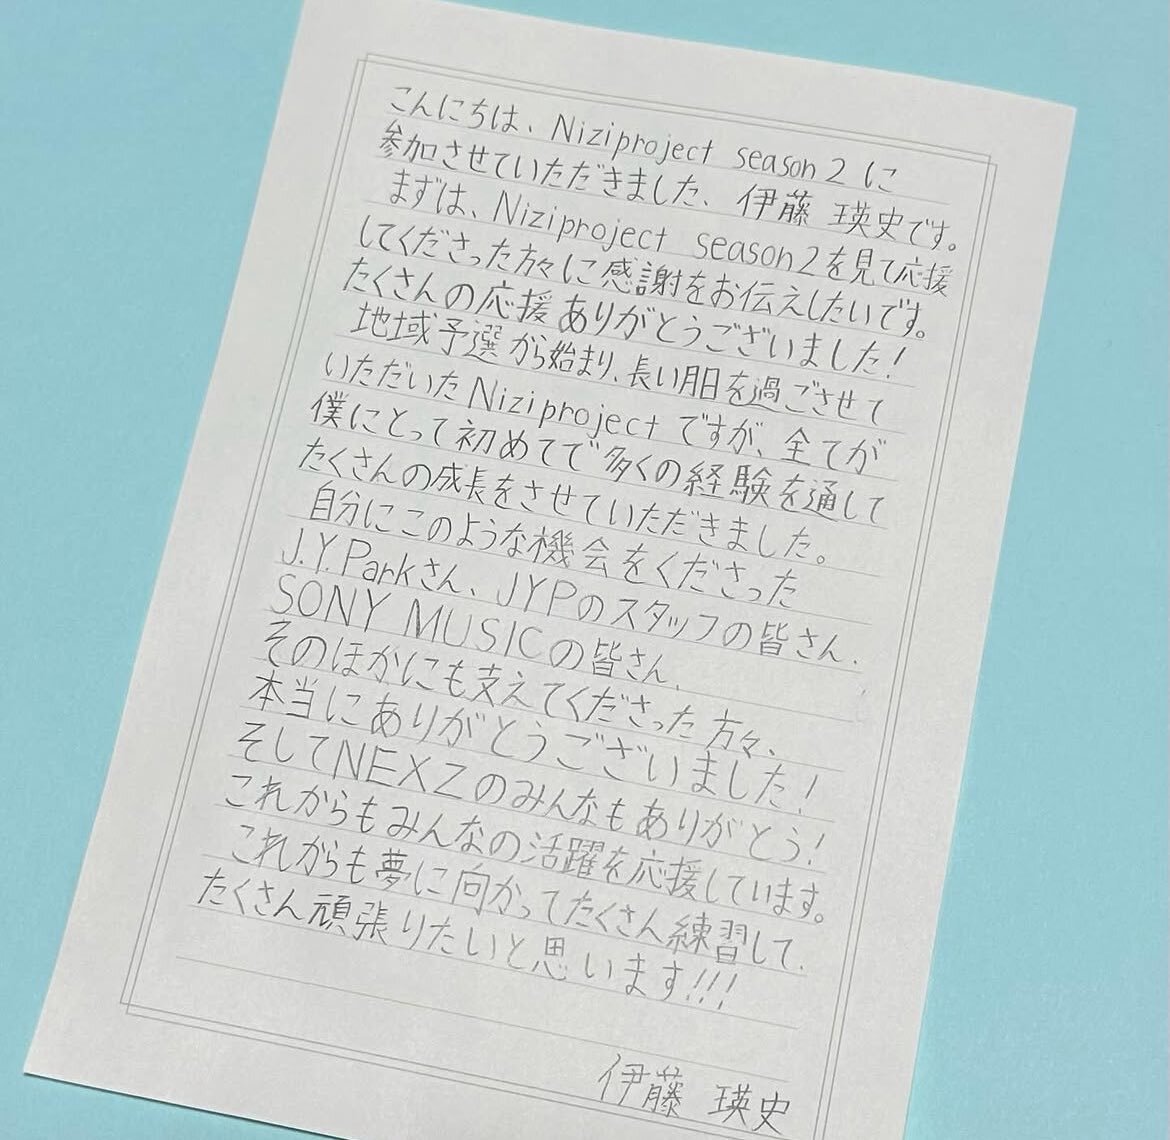 こんにちは、Niziproject season2に
参加させていただきました、伊藤 瑛史です。
まずは、Niziproject season2を見て応援
してくださった方々に感謝をお伝えしたいです。
たくさんの応援ありがとうございました!
地域予選から始まり、長い月日を過ごさせて
いただいたNiziprojectですが、全てが
僕にとって初めてで多くの経験を通して
たくさんの成長をさせていただきました。
自分にこのような機会をくださった
J.Y.Parkさん、JYPのスタッフの皆さん、
SONY MUSICの皆さん、
そのほかにも支えてくださった方々、
本当にありがとうございました!
そしてNEXZのみんなもありがとう!
これからもみんなの活躍を応援しています。
これからも夢に向かってたくさん練習して、
たくさん頑張りたいと思います!!!
伊藤 瑛史